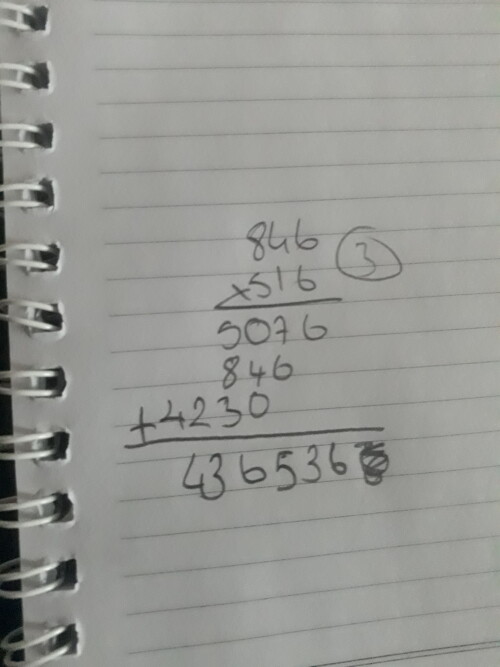 846
x516
3
5076
846
+4230
436536